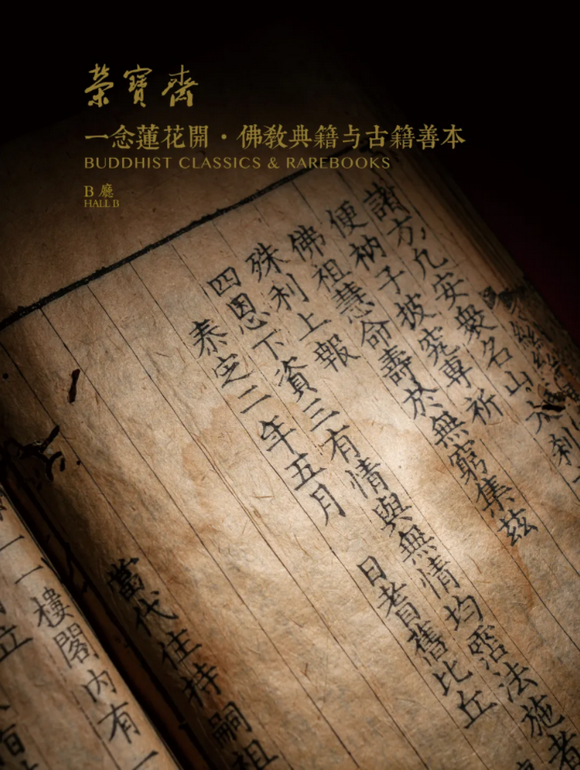 榮寶齋
一念蓮花開・佛教典籍与古籍善本
BUDDHIST CLASSICS & RAREBOOKS
B 廳
HALL B
諸方凡安衆名山大刹一
便衲子披究專祈
佛祖慧命壽於無窮集茲
殊利上報
四恩下資三有情與無情均霑法施者
泰定二年五月 日耆舊比丘
當代住持嗣祖
樓閣内有一